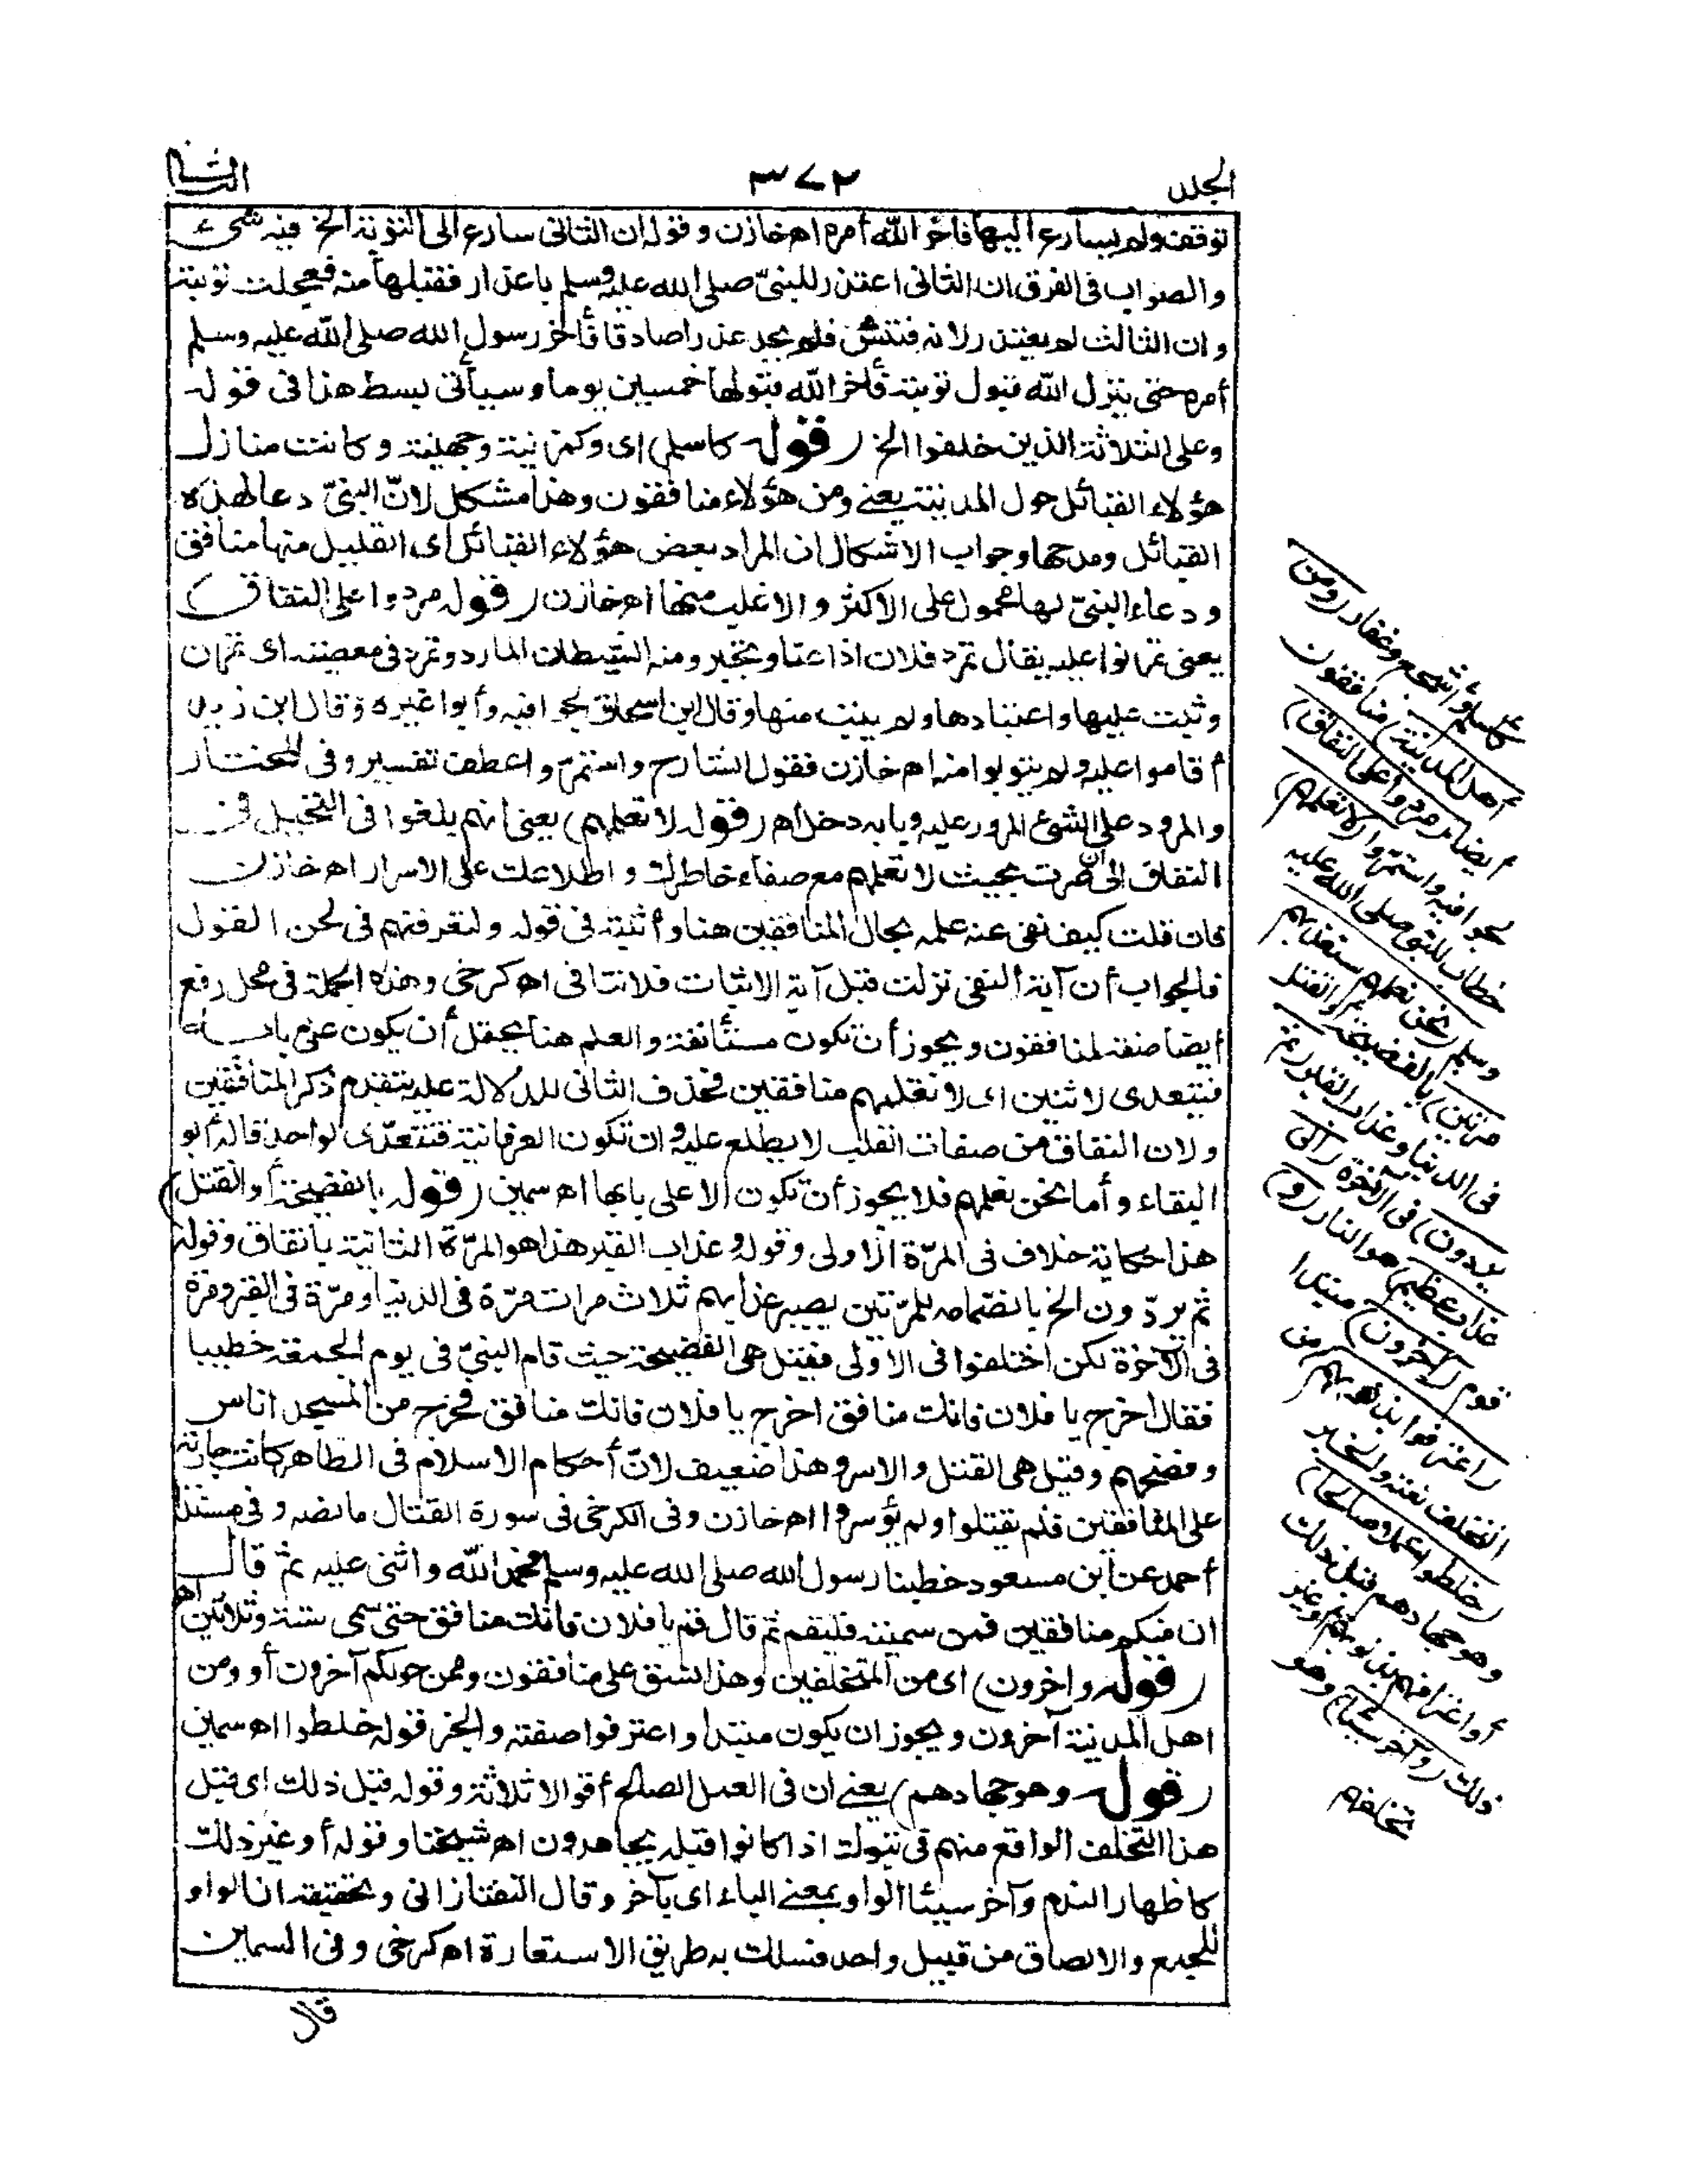 الجلد
٣٧٢
الثانى
توقف ولم يسارع اليها فأخر الله أمره اه خازن وقوله ان الثانى سارع الى التوبة الخ فيه شئ
والصواب فى الفرق ان الثانى اعتذر للنبىّ صلى الله عليه وسلم باعذار فقبلها منه فعجلت توبته
وان الثالث لم يعتذر لانه فتش فلم يجد عذرا صادقا فأخر رسول الله صلى الله عليه وسلم
أمره حتى ينزل الله قبول توبته فأخر الله قبولها خمسين يوما وسيأتى بسط هذا فى قوله
وعلى الثلاثة الذين خلفوا الخ (قوله كاسلم) اى وكمزينة وجهينة وكانت منازل
هؤلاء القبائل حول المدينة يعنى ومن هؤلاء منافقون وهذا مشكل لانّ النبىّ دعا لهذه
القبائل ومدحها وجواب الاشكال ان المراد بعض هؤلاء القبائل اى القليل منها منافق
ودعاء النبىّ لها محمول على الاكثر والاغلب منها اه خازن (قوله مردوا على النفاق)
يعنى تمرنوا عليه يقال تمرد فلان اذا عتا وتجبر ومنه الشيطان المارد وتمرد فى معصيته اى تمرن
وثبت عليها واعتادها ولم يبت منها وقال ابن اسحاق لجوا فيه وأبوا غيره وقال ابن زيد
أقاموا عليه ولم يتوبوا منه اه خازن فقول الشارح واستمرّوا عطف تفسير وفى المختار
والمرود على الشئ المرور عليه وبابه دخل اه (قوله لا تعلمهم) يعنى انهم بلغوا فى التحيل فى
النفاق الى أن صرت بحيث لا تعلمهم مع صفاء خاطرك واطلاعك على الاسرار اه خازن
فان قلت كيف نفى عنه علمه بحال المنافقين هنا وأثبته فى قوله ولتعرفنهم فى لحن القول
فالجواب أن آية النفى نزلت قبل آية الاثبات فلا تنافى اه كرخى وهذه الجملة فى محل رفع
أيضا صفة لمنافقون ويجوز أن تكون مستأنفة والعلم هنا يحتمل أن يكون على بابه
فيتعدى لاثنين اى لا تعلمهم منافقين فحذف الثانى للدلالة عليه بتقدم ذكر المنافقين
ولان النفاق من صفات القلب لا يطلع عليه وان تكون العرفانية فتتعدّى لواحد قاله أبو
البقاء وأما نحن نعلمهم فلا يجوز أن تكون الا على بابها اه سمين (قوله بالفضيحة أو القتل)
هذا حكاية خلاف فى المرّة الاولى وقوله وعذاب القبر هذا هو المرّة الثانية باتفاق وقوله
ثم يردّون الخ بانضمامه للمرّتين يصير عذابهم ثلاث مرات مرّة فى الدنيا ومرّة فى القبر ومرة
فى الآخرة لكن اختلفوا فى الاولى فقيل هى الفضيحة حيث قام النبىّ فى يوم الجمعة خطيبا
فقال اخرج يا فلان فانك منافق اخرج يا فلان فانك منافق فخرج من المسجد اناس
وفضحهم وقيل هى القتل والاسر وهذا ضعيف لانّ أحكام الاسلام فى الظاهر كانت جارية
على المنافقين فلم يقتلوا ولم يؤسروا اه خازن وفى الكرخى فى سورة القتال ما نصه وفى مسند
أحمد عن ابن مسعود خطبنا رسول الله صلى الله عليه وسلم فحمد الله واثنى عليه ثم قال
ان منكم منافقين فمن سميته فليقم ثم قال قم يا فلان فانك منافق حتى سمى ستة وثلاثين اه
(قوله وآخرون) اى من المتخلفين وهذا نسق على منافقون وممن حولكم آخرون أو ومن
اهل المدينة آخرون ويجوز ان يكون مبتدأ واعترفوا صفته والخبر قوله خلطوا اه سمين
(قوله وهو جهادهم) يعنى ان فى العمل الصالح أقوالا ثلاثة وقوله قبل ذلك اى قبل
هذا التخلف الواقع منهم فى تبوك اذ كانوا قبله يجاهدون اه شيخنا وقوله أو غير ذلك
كاظهار الندم وآخر سيئا الواو بمعنى الباء اى بآخر وقال التفتازانى وتحقيقه ان الواو
للجمع والالصاق من قبيل واحد فسلك به طريق الاستعارة اه كرخى وفى السمين
قال
كاسلم وأشجع وغفار (ومن
أهل المدينة) منافقون
أيضا (مردوا على النفاق)
لجوا فيه واستمرّوا (لا تعلمهم)
خطاب للنبى صلى الله عليه
وسلم (نحن نعلمهم سنعذبهم
مرّتين) بالفضيحة أو القتل
فى الدنيا وعذاب القبر (ثم
يردّون) فى الآخرة (الى
عذاب عظيم) هو النار (و)
قوم (آخرون) مبتدأ
(اعترفوا بذنوبهم) من
التخلف نعته والخبر
(خلطوا عملا صالحا)
وهو جهادهم قبل ذلك
أو اعترافهم بذنوبهم أو غير
ذلك (وآخر سيئا) وهو
تخلفهم